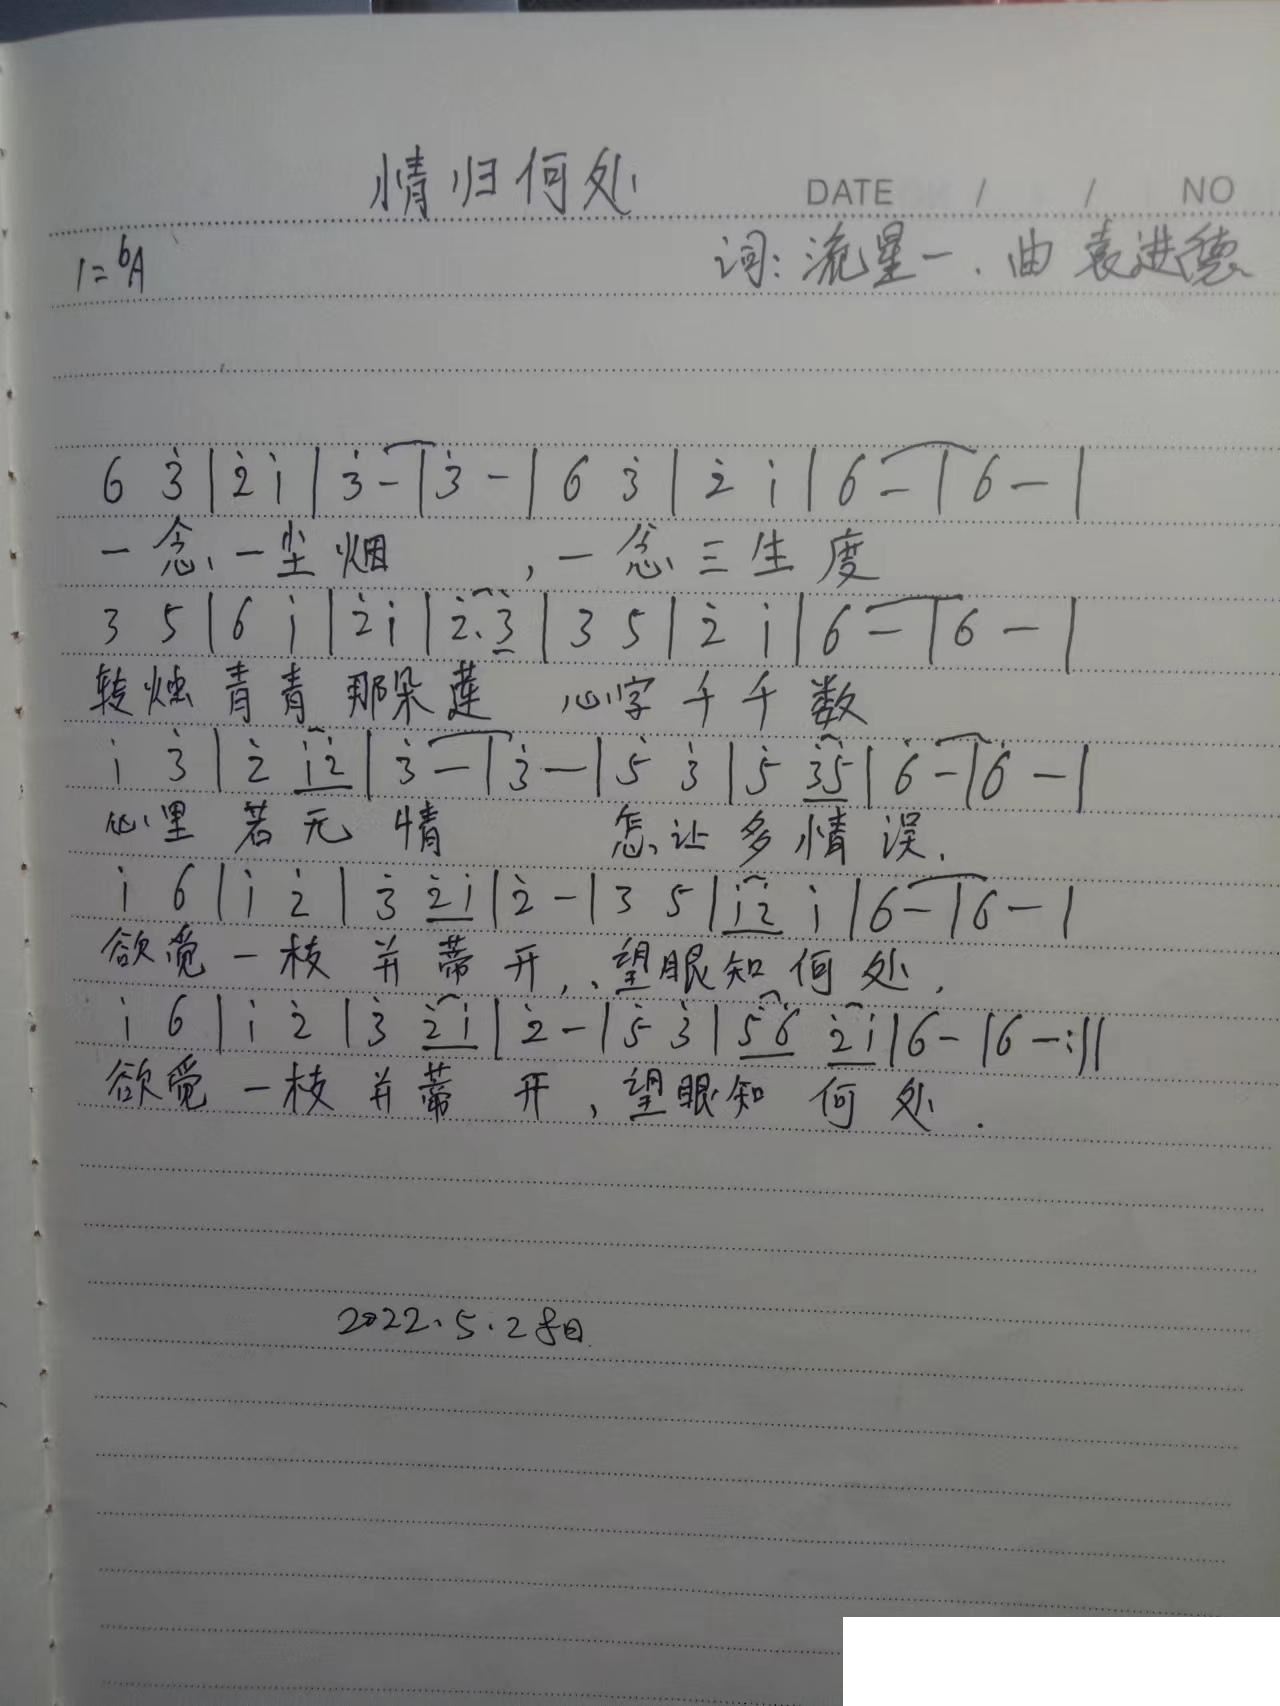 情归何处
DATE / / NO
1=ᵇA
词:流星一.曲 袁进德
6 3̇ | 2̇ 1̇ | 3̇ - | 3̇ - | 6 3̇ | 2̇ 1̇ | 6 - | 6 - |
一念、一尘烟 ,一念三生度
3 5 | 6 1̇ | 2̇ 1̇ | 2̇. 3̇ | 3 5 | 2̇ 1̇ | 6 - | 6 - |
转烛青青那朵莲 心字千千数
1̇ 3̇ | 2̇ 1̇2̇ | 3̇ - | 3̇ - | 5̇ 3̇ | 5̇ 3̇5̇ | 6̇ - | 6̇ - |
心里若无情 怎让多情误.
1̇ 6 | 1̇ 2̇ | 3̇ 2̇1̇ | 2̇ - | 3 5 | 1̇2̇ 1̇ | 6 - | 6 - |
欲觅一枝并蒂开,.望眼知何处.
1̇ 6 | 1̇ 2̇ | 3̇ 2̇1̇ | 2̇ - | 5̇ 3̇ | 5̇6̇ 2̇1̇ | 6 - | 6 - :||
欲觅一枝并蒂开,望眼知何处.
2022.5.2